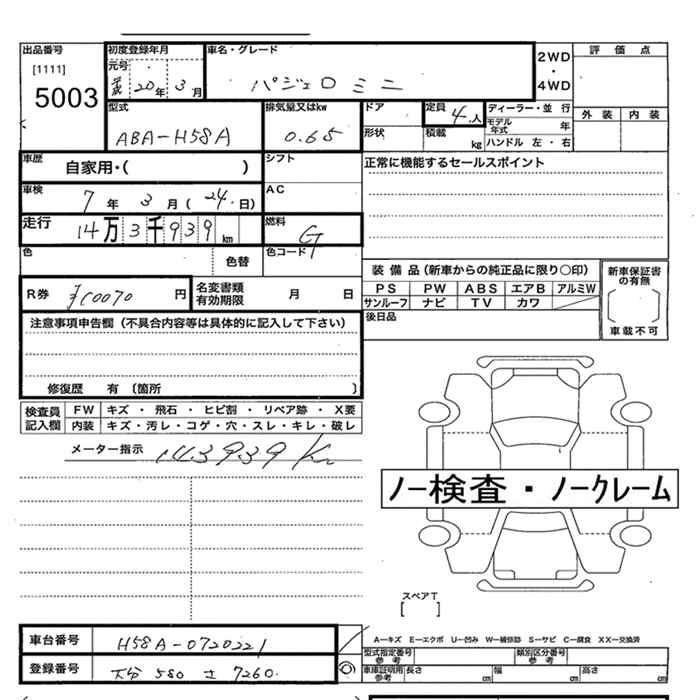 出品番号 初度登録年月 車名・グレード 評価点
[1111] 元号 2WD・4WD
5003 20年 3月 パジェロ ミニ
外装 内装
型式 排気量又はkw ドア 定員 4人 ディーラー・並行
ABA-H58A 0.65 形状 積載 kg モデル年式 年
ハンドル 左・右
車歴 自家用・( ) シフト 正常に機能するセールスポイント
車検 7年 3月(24日) AC
走行 14万3千939km 燃料 G
色 色替 色コード
装備品(新車からの純正品に限り○印) 新車保証書の有無
R券 円 名変書類有効期限 月 日 PS PW ABS エアB アルミW
サンルーフ ナビ TV カワ
注意事項申告欄(不具合内容等は具体的に記入して下さい) 後日品 車載不可
修復歴 有 〔箇所 〕
検査員記入欄 FW キズ・飛石・ヒビ割・リペア跡・X要
内装 キズ・汚レ・コゲ・穴・スレ・キレ・破レ
メーター指示 143939Km
ノー検査・ノークレーム
スペアT
[ ]
車台番号 H58A-0720221 A−キズ E−エクボ U−凹み W−補修跡 S−サビ C−腐食 XX−交換済
型式指定番号 参考 類別区分番号 参考
登録番号 大分 580 さ 7260 車車証明用 参考 長さ cm 幅 cm 高さ cm